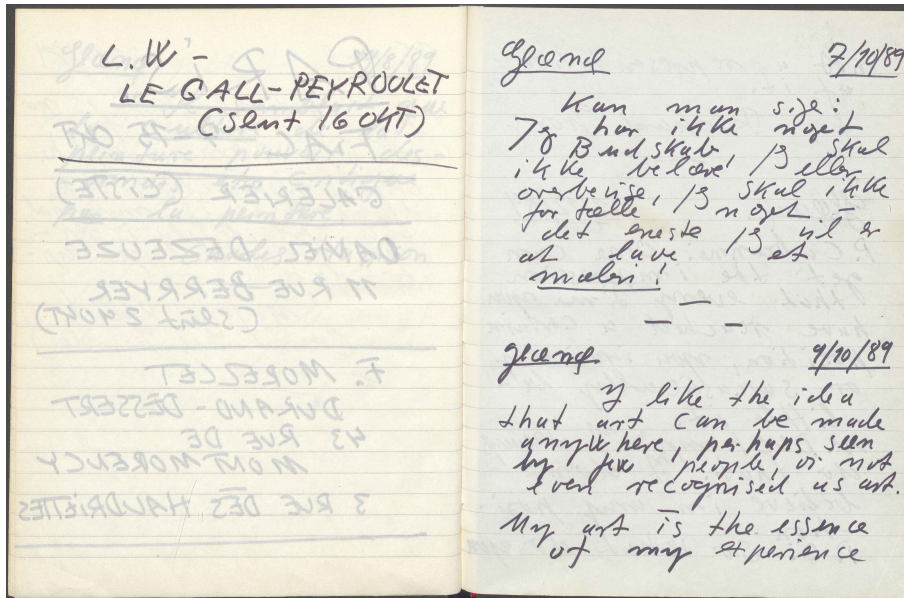 L.W -
LE GALL-PEYROULET
(slut 16 OKT)
Gland 7/10/89
Kan man sige:
Jeg har ikke noget
Budskab, jeg skal
ikke belære eller
overbevise, jeg skal ikke
fortælle noget -
det eneste jeg vil er
at lave et
maleri!
gland 9/10/89
I like the idea
that art can be made
anywhere, perhaps seen
by few people, or not
even recognised as art.
My art is the essence
of my experience